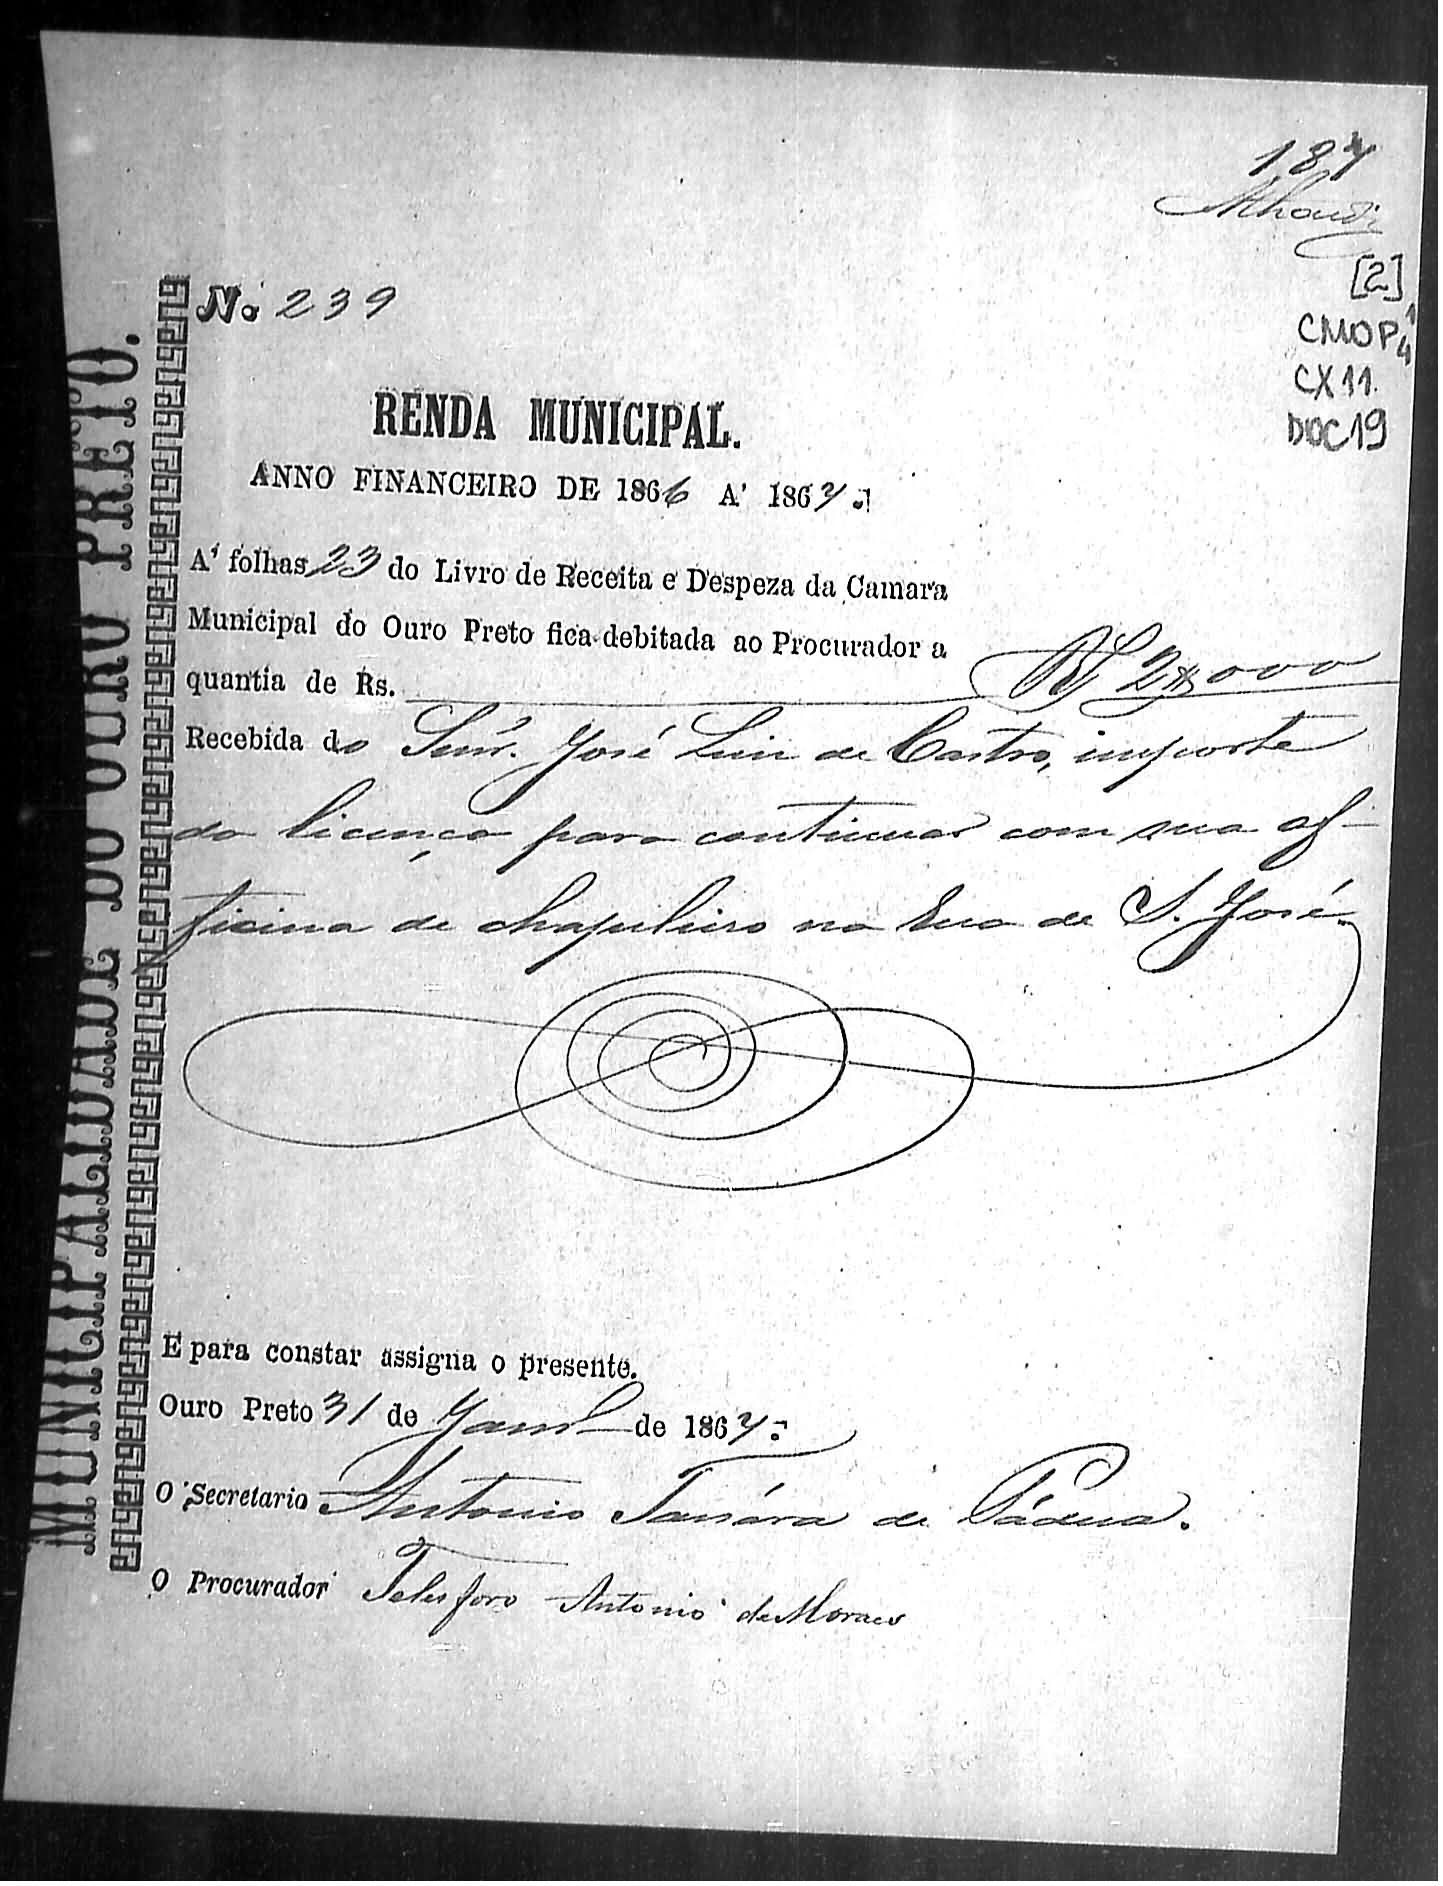 187
[2]
CMOP 1/4
CX 11.
DOC 19
MUNICIPALIDADE DO OURO PRETO.
N.º 239
RENDA MUNICIPAL.
ANNO FINANCEIRO DE 1866 A' 1867.
A' folhas 23 do Livro de Receita e Despeza da Camara
Municipal do Ouro Preto fica debitada ao Procurador a
quantia de Rs. R$ 2$000
Recebida do Senr. José Luiz de Castro, importe
da licença para continuar com sua of-
ficina de chapeleiro na Rua de S. José
E para constar assigna o presente.
Ouro Preto 31 de Janr.º de 1867.
O Secretario Antonio de Pádua.
O Procurador Telesforo Antonio de Moraes